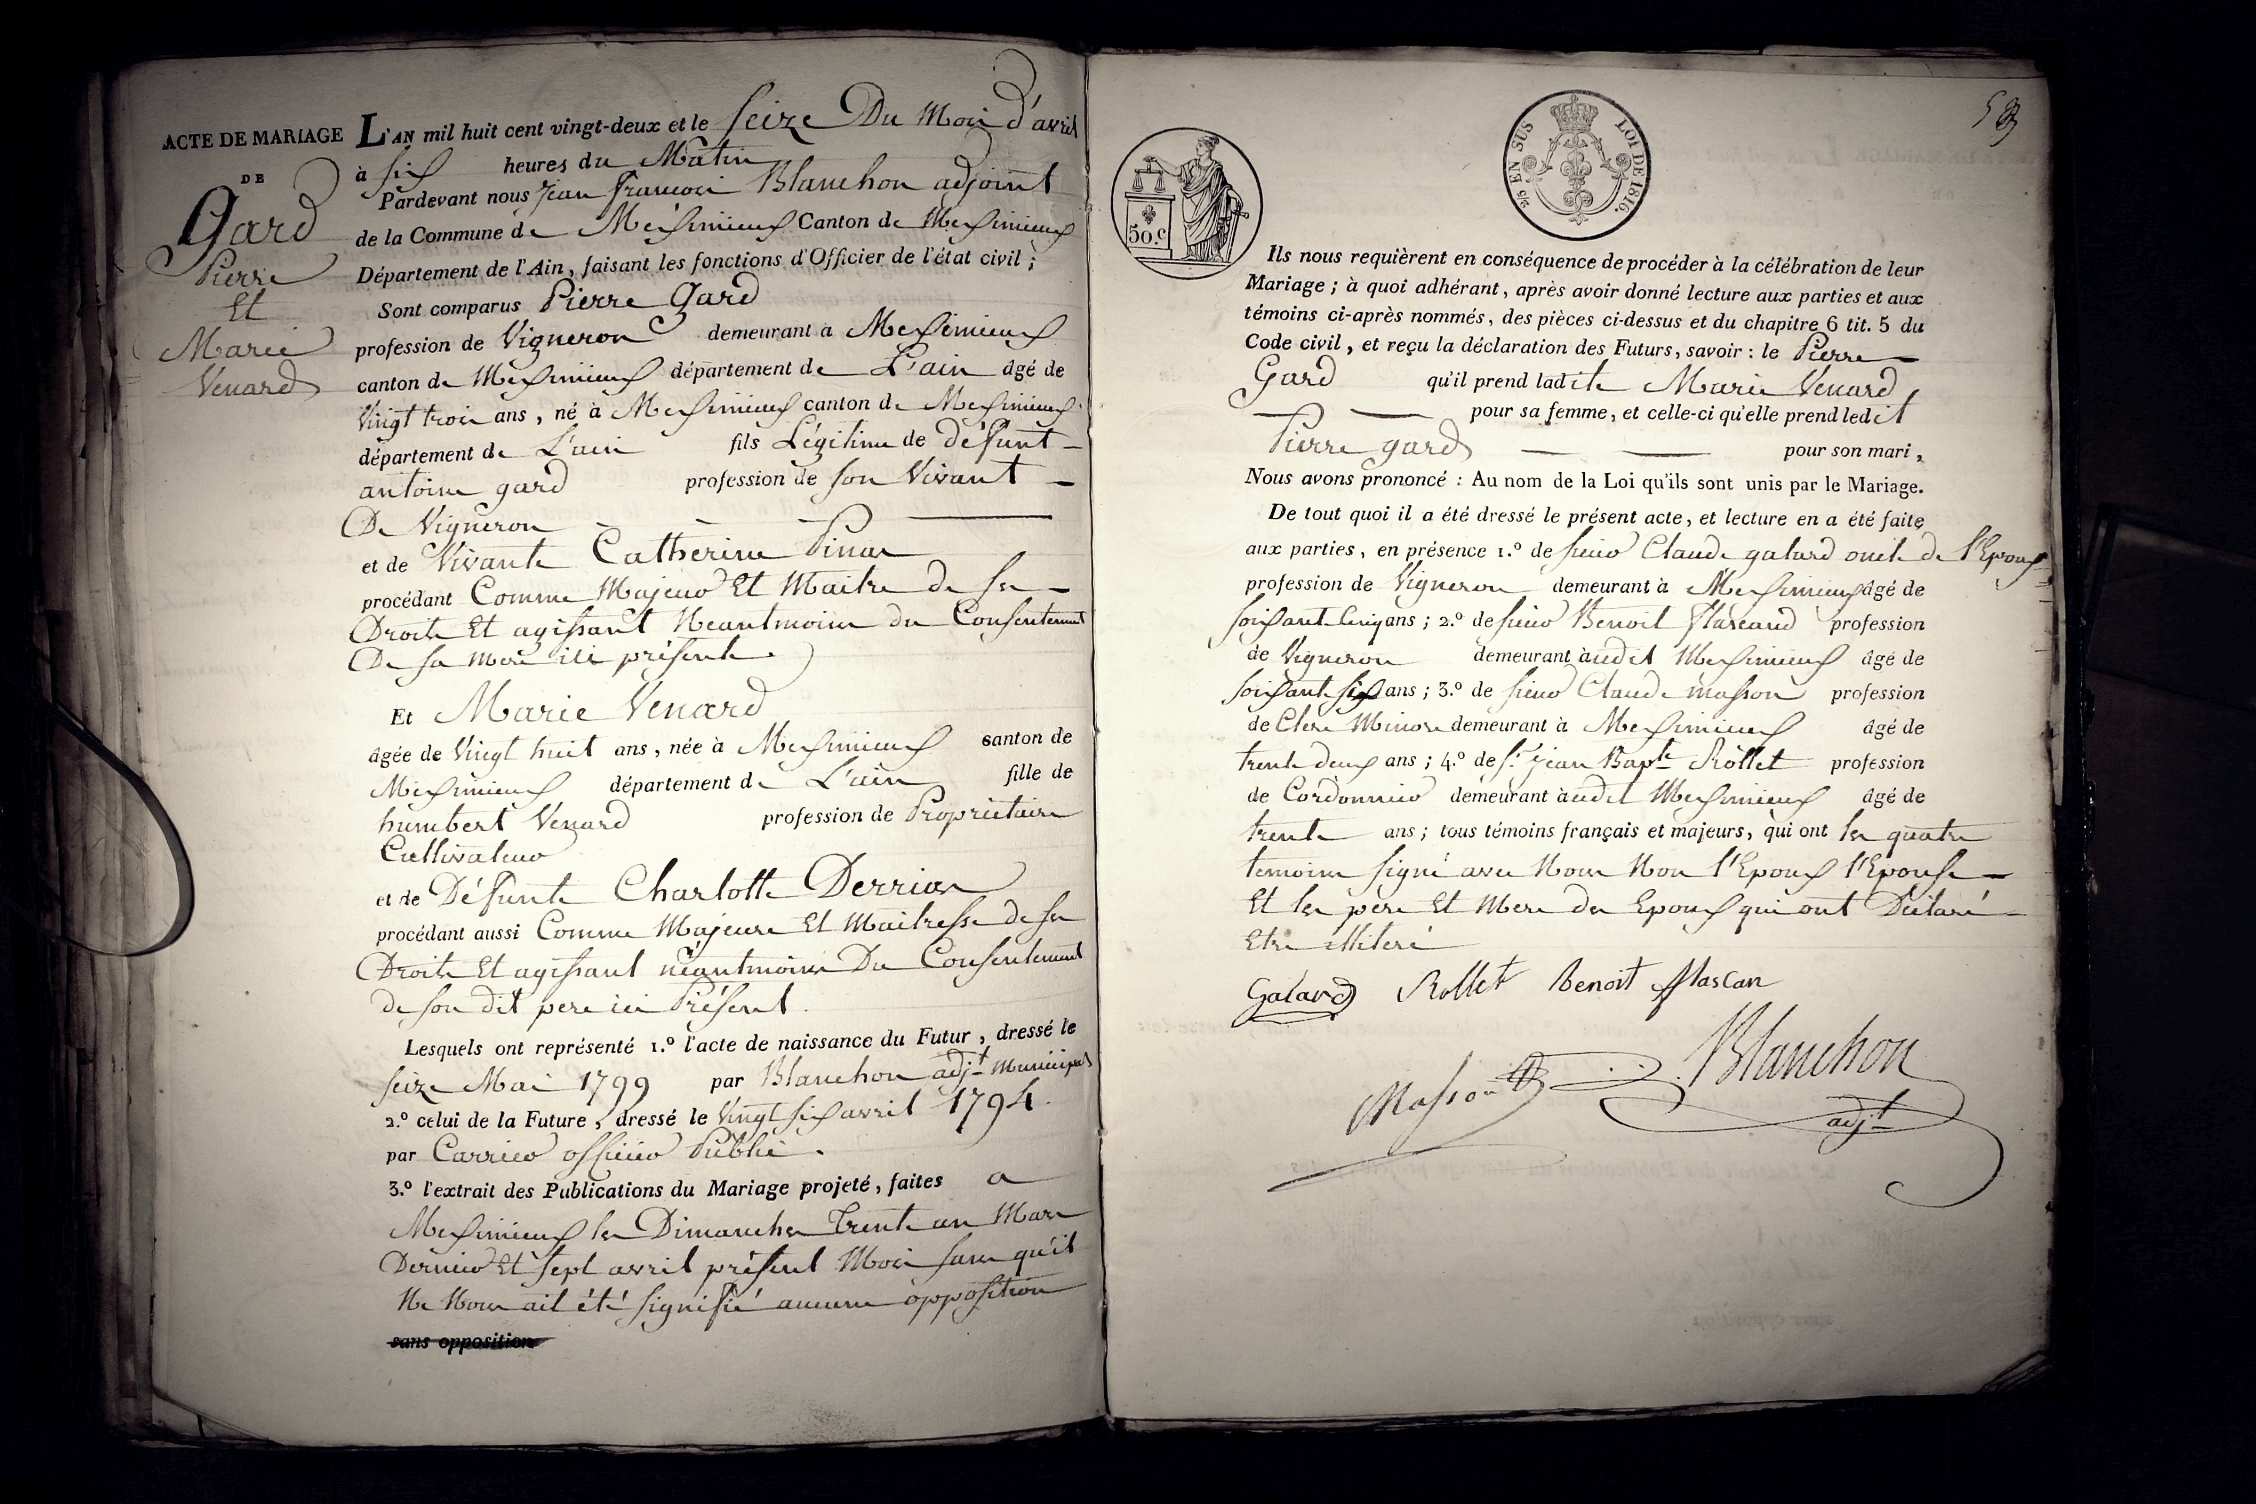 ACTE DE MARIAGE
DE
Gard
Pierre
Et
Marie
Venard
L'AN mil huit cent vingt-deux et le seize Du Mois d'avril
à six heures du Matin
Pardevant nous Jean françois Blanchon adjoint
de la Commune de Meximieux Canton de Meximieux
Département de l'Ain, faisant les fonctions d'Officier de l'état civil;
Sont comparus Pierre Gard
profession de Vigneron demeurant à Meximieux
canton de Meximieux département de L'ain âgé de
Vingt trois ans, né à Meximieux canton de Meximieux
département de L'ain fils Légitime de défunt
antoine gard profession de son Vivant
De Vigneron
et de Vivante Catherine Pinas
procédant Comme Majeur Et Maitre de ses
Droits Et agissant Neantmoins du Consentement
De sa Mere ici présente
Et Marie Venard
âgée de Vingt huit ans, née à Meximieux canton de
Meximieux département de L'ain fille de
humbert Venard profession de Propriétaire
Cultivateur
et de Défunte Charlotte Derrias
procédant aussi Comme Majeure Et Maitresse de ses
Droits Et agissant néantmoins Du Consentement
de son dit pere ici Présent.
Lesquels ont représenté 1.º l'acte de naissance du Futur, dressé le
seize Mai 1799 par Blanchon adj.t Municipal
2.º celui de la Future, dressé le Vingt six avril 1794.
par Carrier officier Public.
3.º l'extrait des Publications du Mariage projeté, faites a
Meximieux les Dimanches Trente un Mars
Dernier Et sept avril présent Mois sans qu'il
Ne Nous ait été signifié aucune opposition
sans opposition
53
50.c
5/10 EN SUS LOI DE 1816.
Ils nous requièrent en conséquence de procéder à la célébration de leur
Mariage; à quoi adhérant, après avoir donné lecture aux parties et aux
témoins ci-après nommés, des pièces ci-dessus et du chapitre 6 tit. 5 du
Code civil, et reçu la déclaration des Futurs, savoir: le Pierre
Gard qu'il prend ladite Marie Venard
pour sa femme, et celle-ci qu'elle prend ledit
Pierre gard pour son mari,
Nous avons prononcé: Au nom de la Loi qu'ils sont unis par le Mariage.
De tout quoi il a été dressé le présent acte, et lecture en a été faite
aux parties, en présence 1.º de sieur Claude galard oncle de l'Epoux
profession de Vigneron demeurant à Meximieux âgé de
soixante cinq ans; 2.º de sieur Benoit Flascand profession
de Vigneron demeurant audit Meximieux âgé de
soixante six ans; 3.º de sieur Claude masson profession
de Clerc Minore demeurant à Meximieux âgé de
trente deux ans; 4.º de s.r jean Bapt.te Rollet profession
de Cordonnier demeurant audit Meximieux âgé de
trente ans; tous témoins français et majeurs, qui ont les quatre
temoins signé avec Nous Non l'Epoux l'Epouse
Et les pere Et Mere des Epoux qui ont Déclaré
Etre illiteré
Galard Rollet Benoit fflascan
Masson Blanchon
adj.t